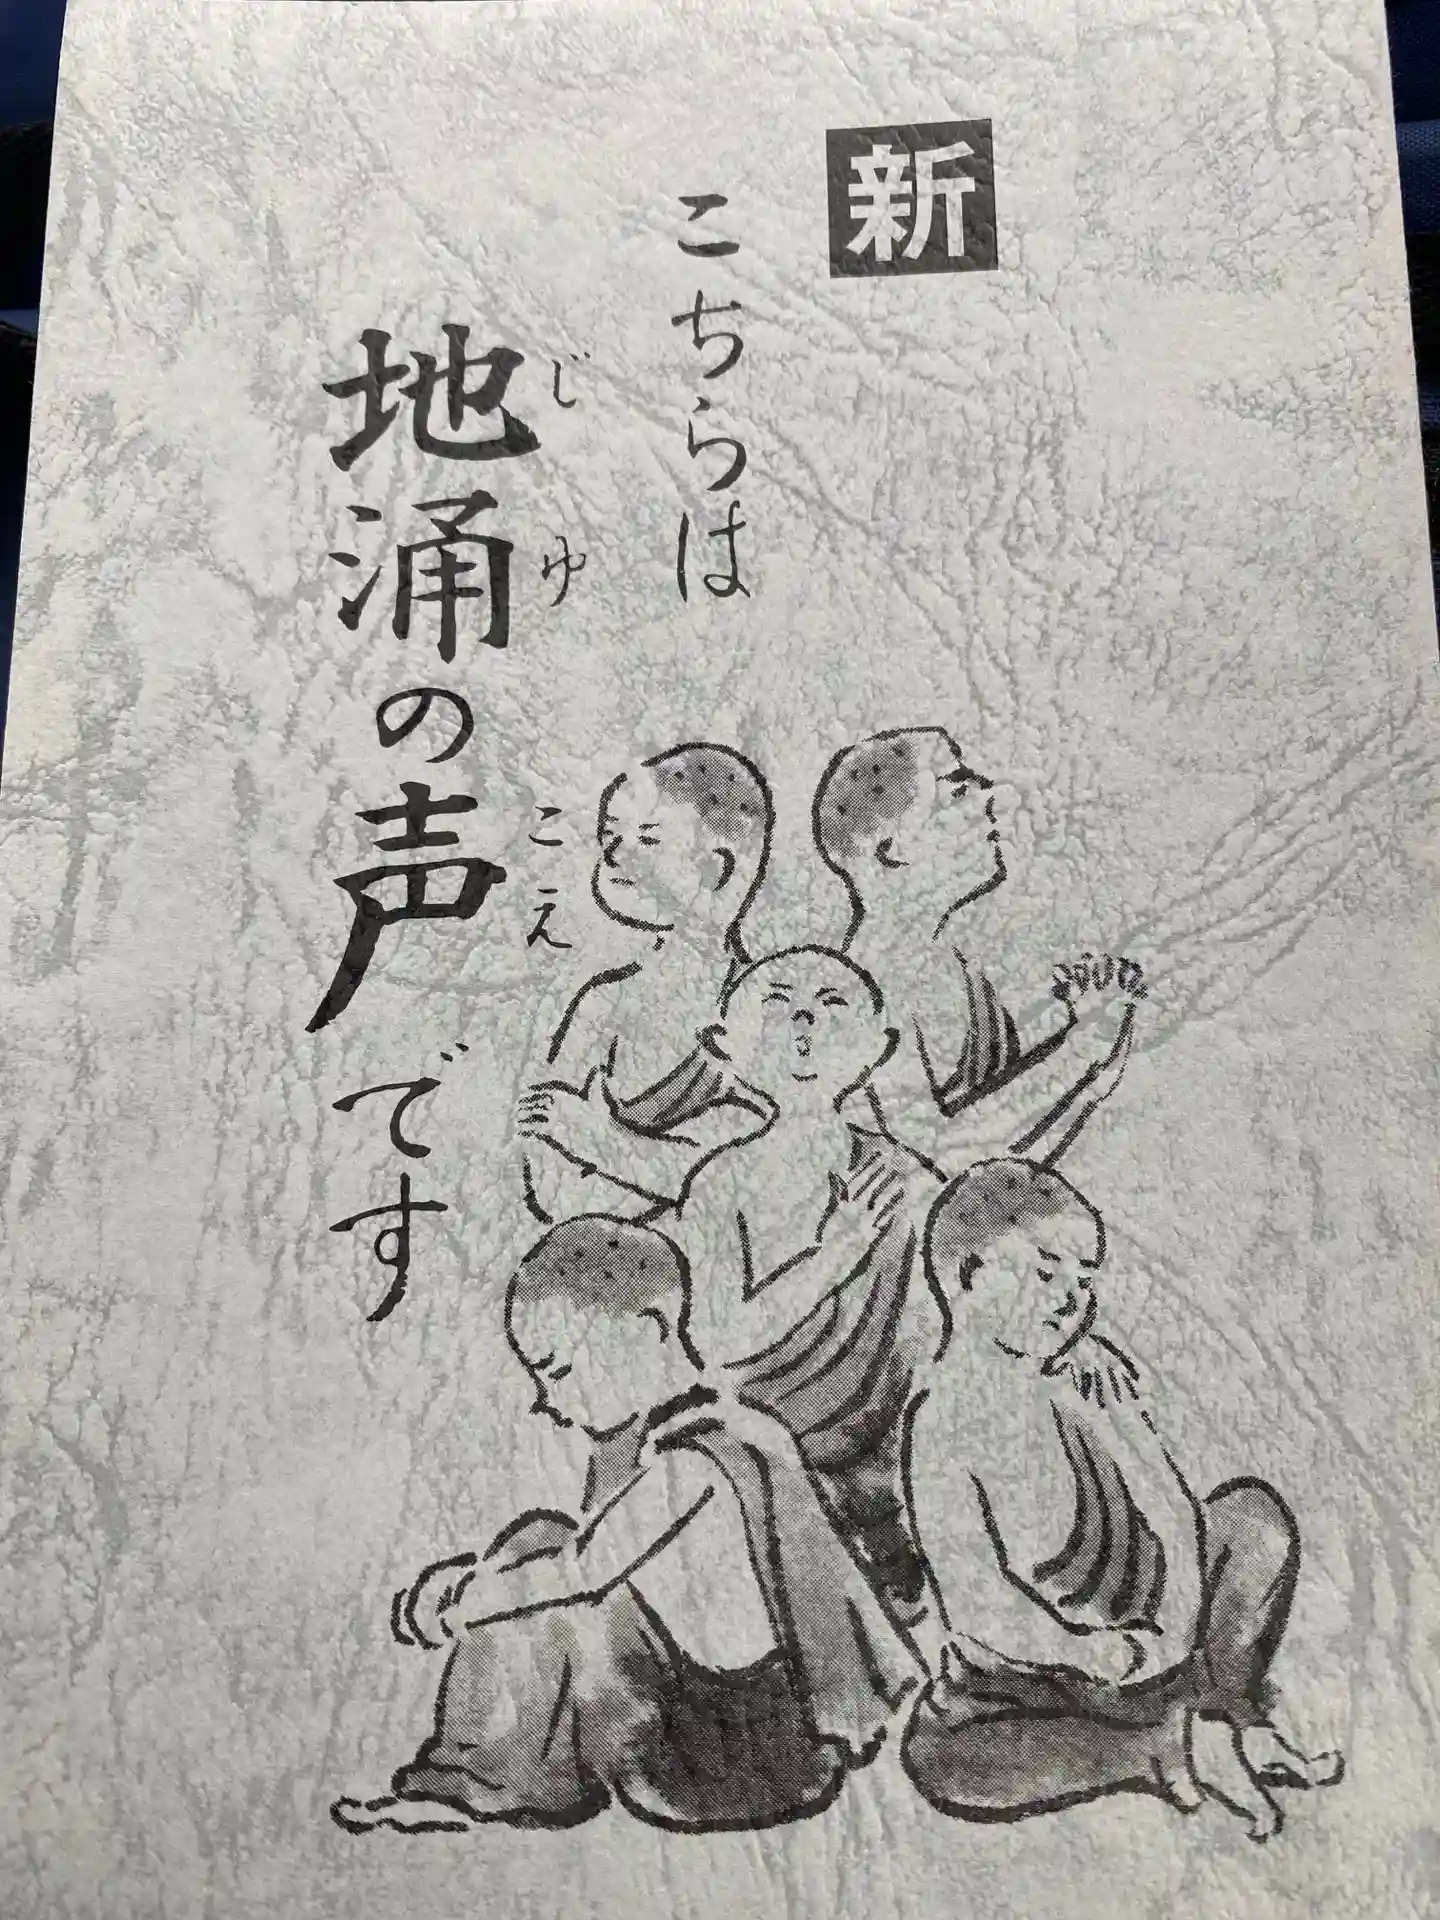 新
こちらは
地涌の声です
じゆ
こえ